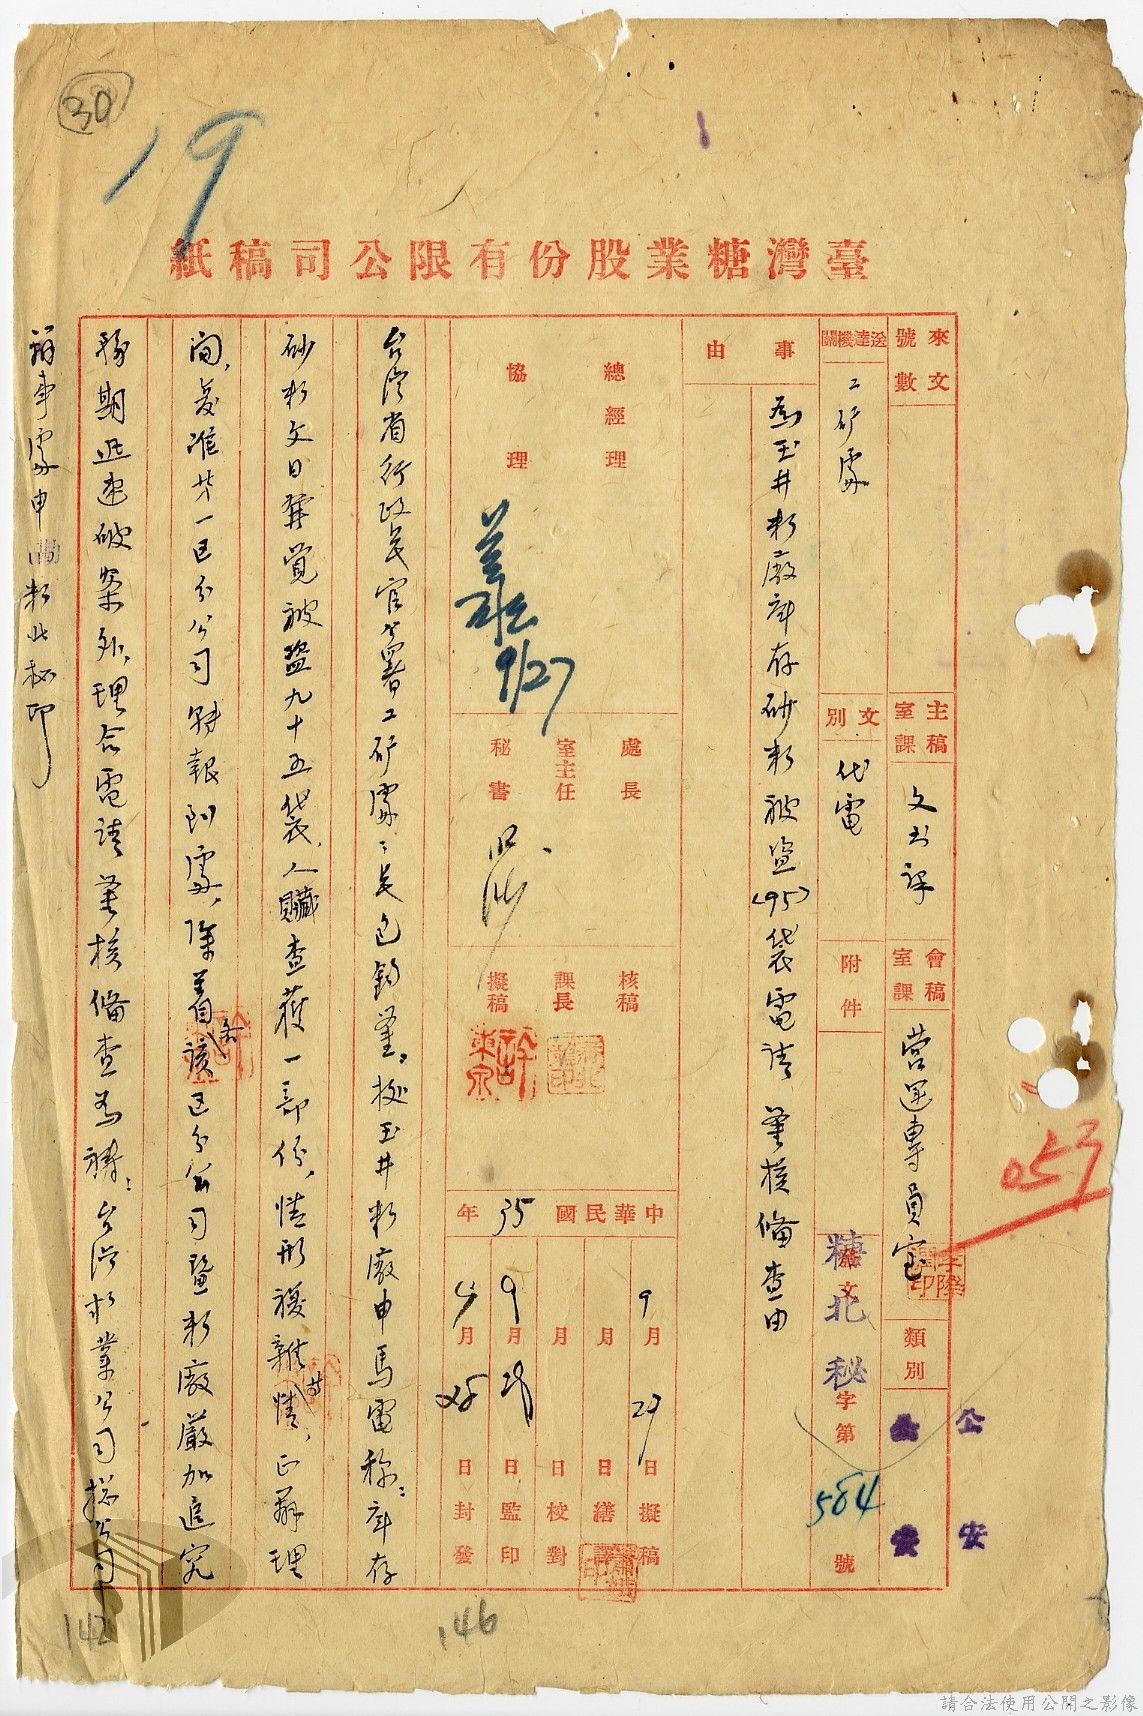 30
19
臺灣糖業股份有限公司稿紙
來文號數
主稿室課 文書課
會稿室課 營運專員室
類別
公安
送達機關 工矿處
文別 代電
附件
發文 糖北秘字第584號
事由
為玉井糖廠庫存砂糖被盜(95)袋電請 鉴核備查由
總經理
協理
9/27
處長
室主任
秘書
核稿
課長
擬稿
中華民國35年
9月27日擬稿
月日繕譯
月日校對
9月28日監印
9月28日封發
台湾省行政長官公署工矿處處長包鈞鉴：據玉井糖廠申馬電称：庫存
砂糖文日發覺被盜九十五袋，人贓查獲一部份，情形複雜等情，正辦理
间，復准廿一區分公司轉報到處，除着該區分公司暨糖廠嚴加追究
務期迅速破案外，理合電請 鉴核備查為禱：台湾糖業公司總公司
辦事處申 糖北秘印
053
146
142
請合法使用公開之影像